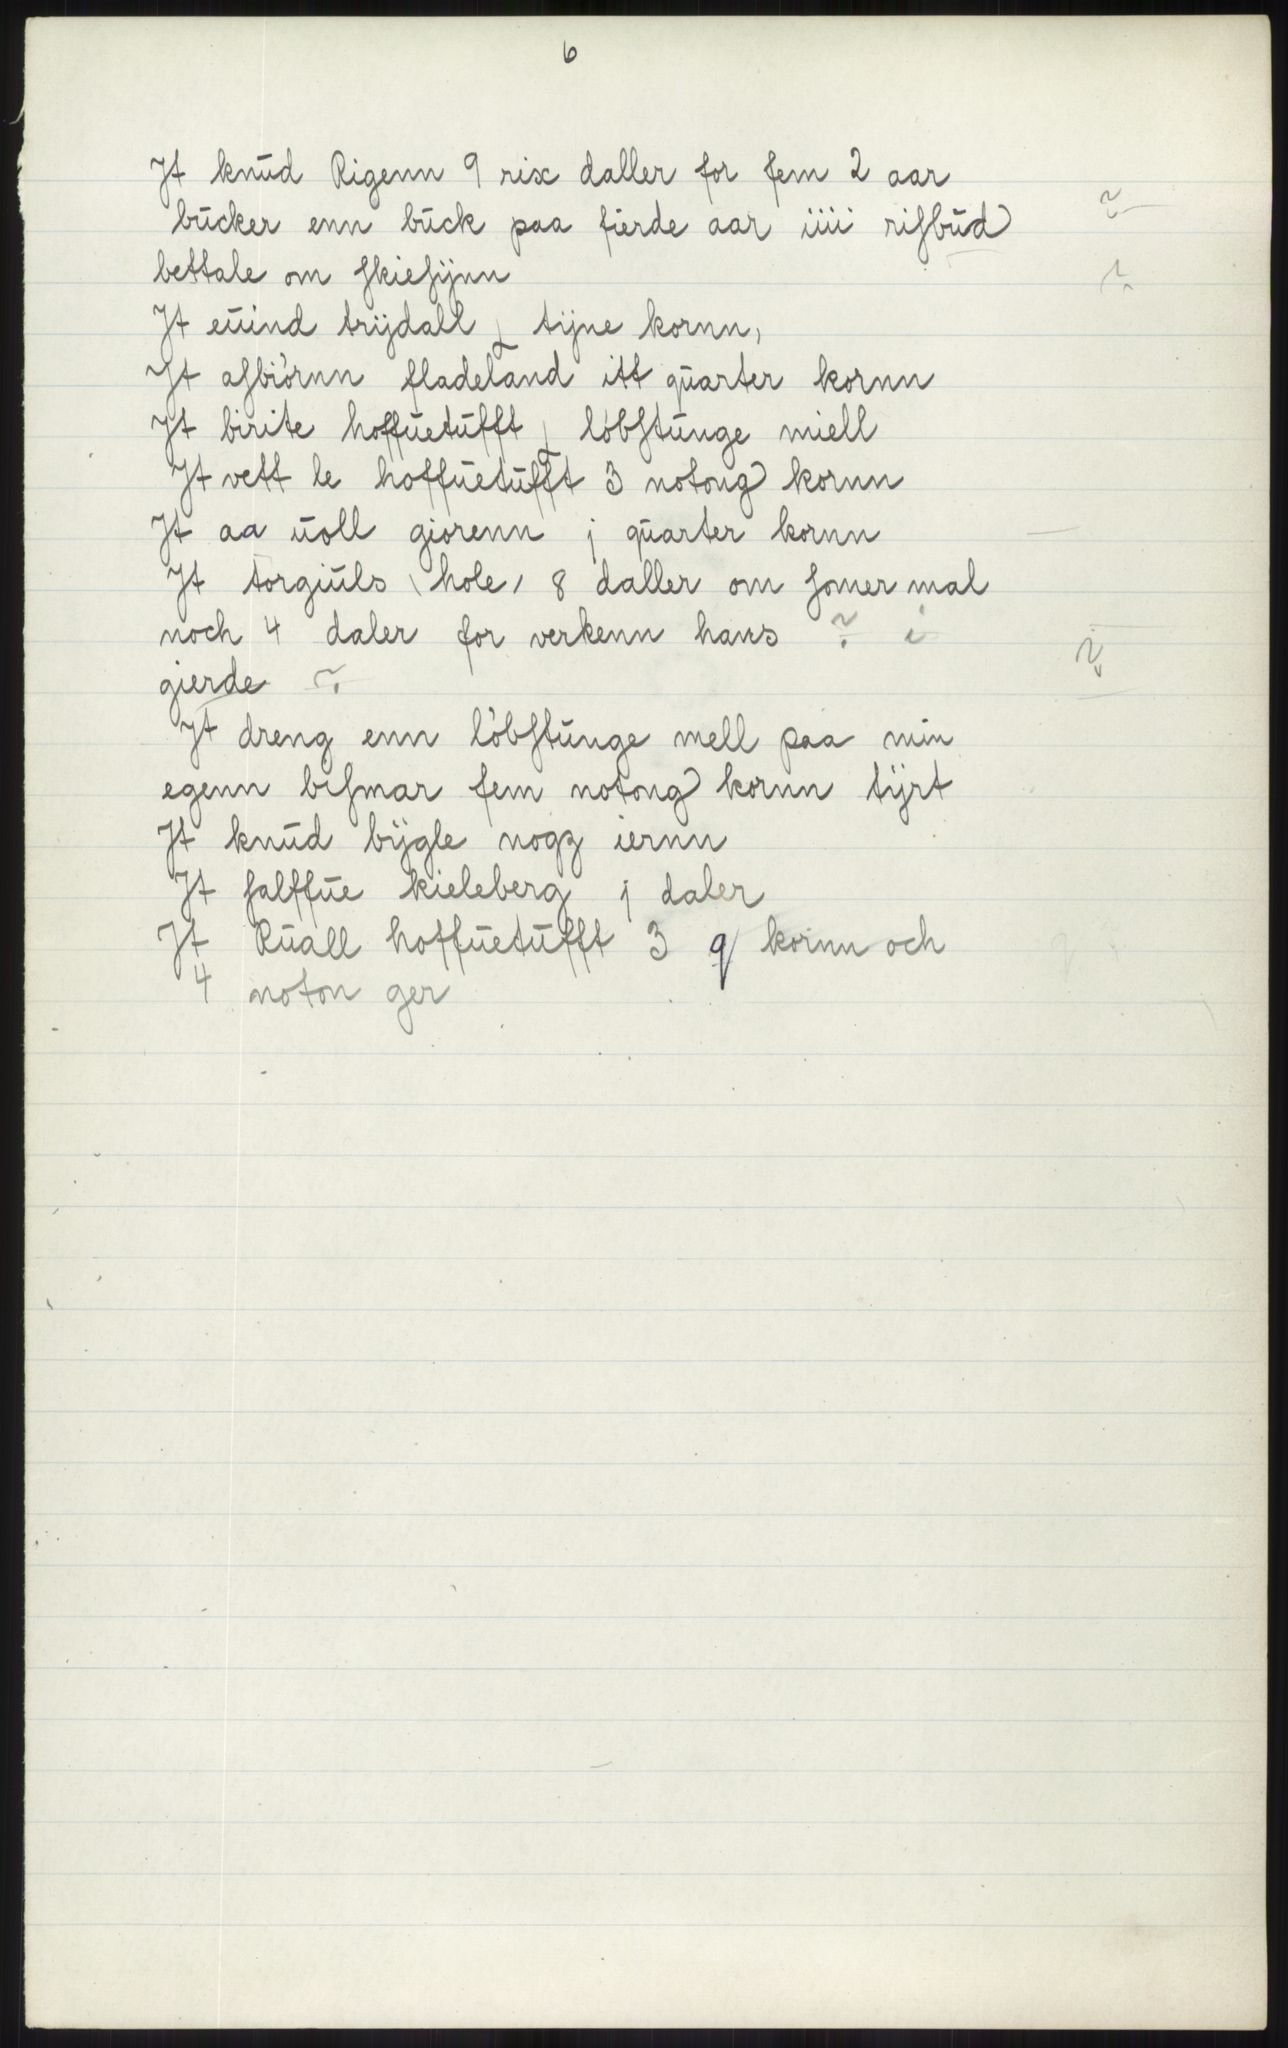 6
It knud Rigenn 9 rix daller for fem 2 aar
bucker enn buck paa fierde aar iiii risbud ?
bettale om skiesijnn ?
It euind trijdall tijne kornn,
It asbiórnn fladeland itt quarter kornn
It birite hoffuetufft lóbstunge miell
It vett le hoffuetufft 3 notong kornn
It aa uoll giorenn j quarter kornn
It torgiuls hole 8 daller om somer mal
noch 4 daler for verkenn hans ? i ?
gierde ?
It dreng enn lóbstunge mell paa min
egenn bismar fem notong kornn tijrt
It knud bijgle nogz iernn
It salffue kieleberg j daler
It Ruall hoffuetufft 3 q kornn och
4 noton ger